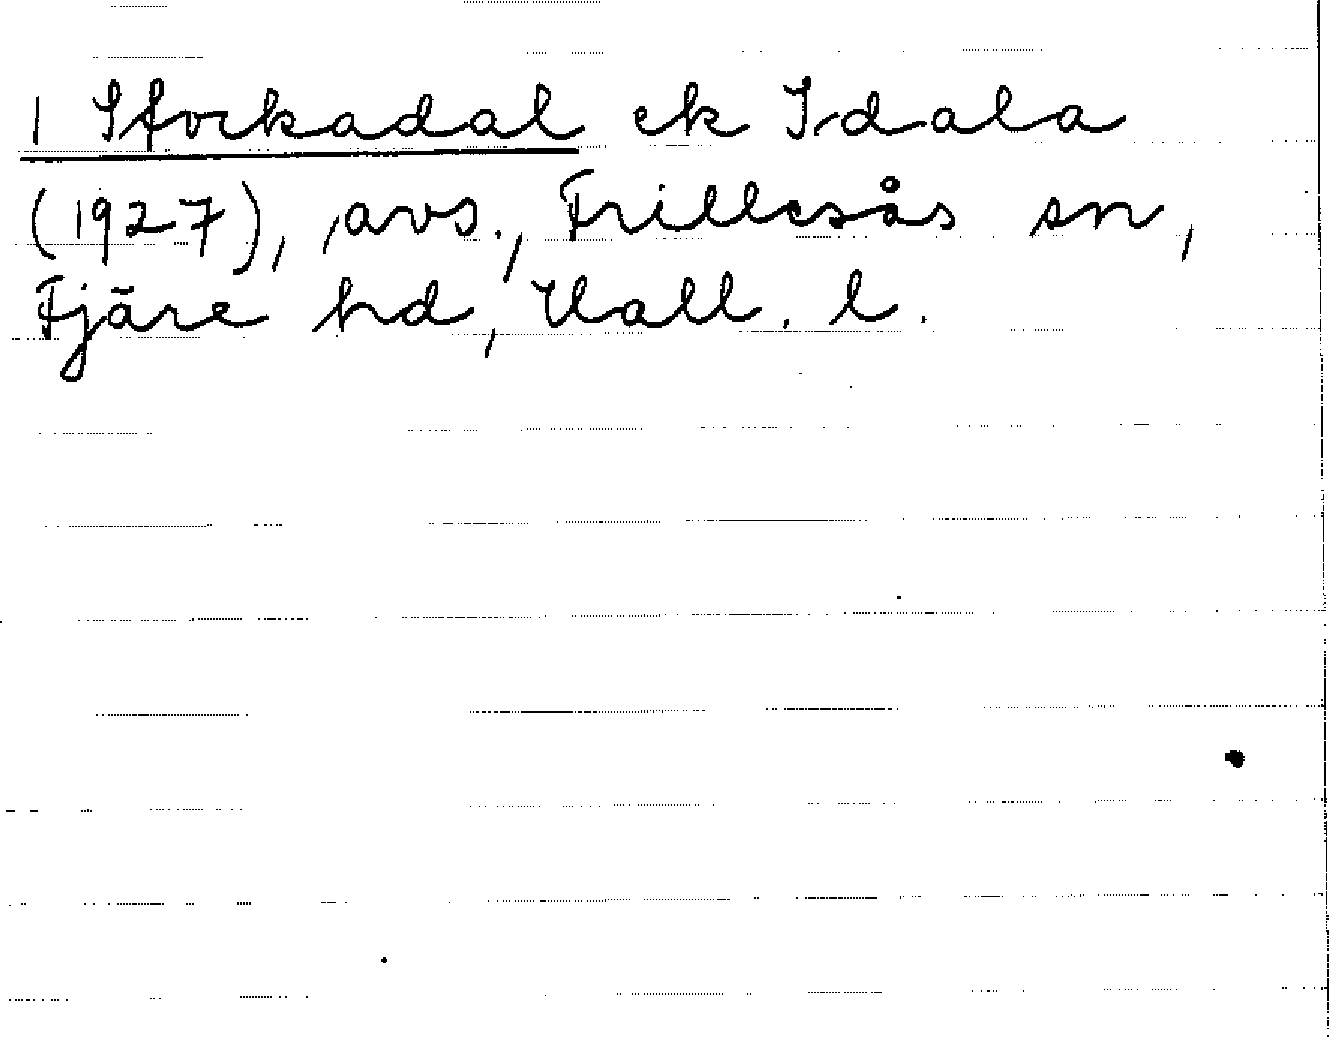 1 Stockadal ek Idala
(1927), avs., Frillesås sn,
Fjäre hd, Hall. l.